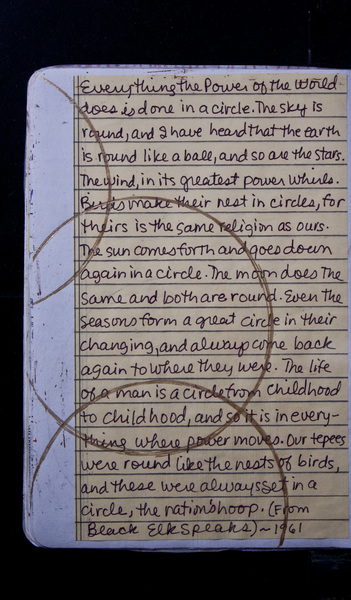 Everything the Power of the World
does is done in a circle. The sky is
round, and I have heard that the earth
is round like a ball, and so are the stars.
The wind, in its greatest power whirls.
Birds make their nest in circles, for
theirs is the same religion as ours.
The sun comes forth and goes down
again in a circle. The moon does the
same and both are round. Even the
seasons form a great circle in their
changing, and always come back
again to where they were. The life
of a man is a circle from childhood
to childhood, and so it is in every-
thing where power moves. Our tepees
were round like the nests of birds,
and these were always set in a
circle, the nation's hoop. (From
Black Elk Speaks) ~ 1961